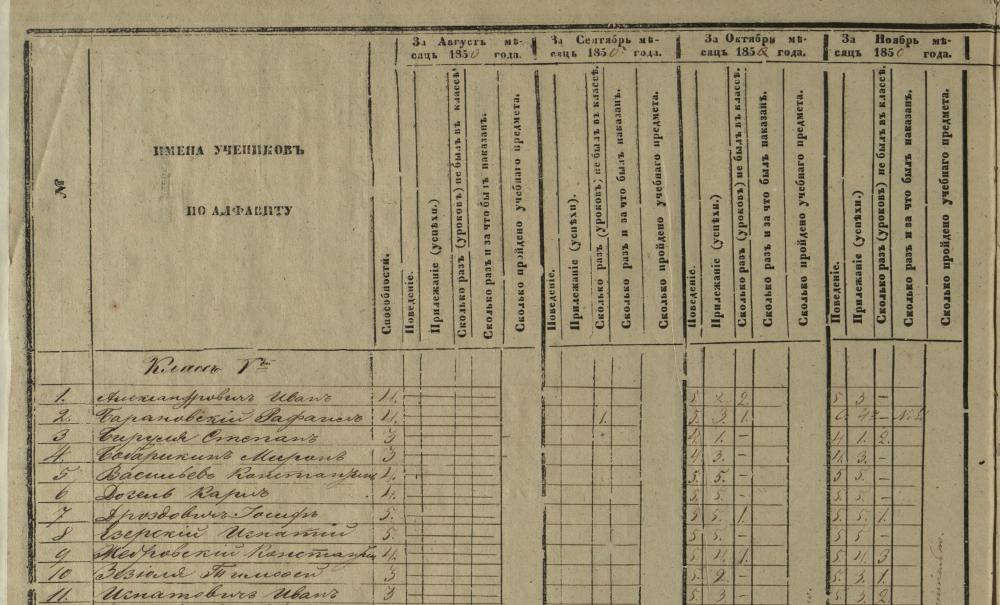 За Августъ мѣ-
сяцъ 1850 года.
За Сентябрь мѣ-
сяцъ 1850 года.
За Октябрь мѣ-
сяцъ 1850 года.
За Ноябрь мѣ-
сяцъ 1850 года.
№
ИМЕНА УЧЕНИКОВЪ
ПО АЛФАВИТУ
Способности.
Поведеніе.
Прилежаніе (успѣхи.)
Сколько разъ (уроковъ) не былъ въ классѣ.
Сколько разъ и за что былъ наказан.
Сколько пройдено учебнаго предмета.
Поведеніе.
Прилежаніе (успѣхи).
Сколько раз (уроковъ) не былъ въ классѣ.
Сколько раз и за что былъ наказан.
Сколько пройдено учебнаго предмета.
Поведеніе.
Прилежаніе (успѣхи.)
Сколько раз (уроковъ) не былъ въ классѣ.
Сколько раз и за что был наказан.
Сколько пройдено учебнаго предмета.
Поведеніе.
Прилежаніе (успѣхи.)
Сколько раз (уроков) не былъ въ классѣ.
Сколько раз и за что былъ наказан.
Сколько пройдено учебнаго предмета.
Классъ
1. Александровичъ Иванъ 4. 5. 2. 2. 5 3 –
2. Барановскій Рафаилъ 4. 1. 5. 3. 1.
3 Бируля Степанъ 3 1. – 4 1. 2.
4. Бобарикинъ Миронъ 3 4 3. – 4. 3. –
5 Васильевъ Константинъ 4. 5. 5. – 5 5. –
6 Догель Карлъ 4. 5. 5. – 5 5. –
7 Дроздовичъ Іосифъ 5. 5 5. 1. 5 5. 1.
8 Езерскій Игнатій 5. 5 5. – 5 5. –
9 Жебровскій Константин 4. 5 4. 1. 5 4. 3
10 Зезюля Тимофей 3 5. 2. – 5. 3. 1.
11. Игнатовичъ Иванъ 3 5. 3. – 5. 3. 2.